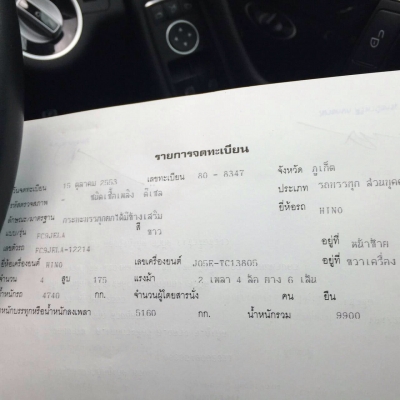 รายการจดทะเบียน
วันจดทะเบียน 15 ตุลาคม 2553 เลขทะเบียน 80 - 8347 จังหวัด ภูเก็ต
ชนิดเชื้อเพลิง ดีเซล ประเภท รถบรรทุก ส่วนบุคคล
ลักษณะ/มาตรฐาน กระบะบรรทุก สี ขาว ยี่ห้อรถ HINO
แบบ/รุ่น FC9JELA
เลขตัวรถ FC9JELA-12214 อยู่ที่ หน้าซ้าย
ยี่ห้อเครื่องยนต์ HINO เลขเครื่องยนต์ J05E-TC13805 อยู่ที่ ขวาเครื่อง
จำนวน 4 สูบ 175 แรงม้า 2 เพลา 4 ล้อ ยาง 6 เส้น
น้ำหนักรถ 4740 กก. จำนวนผู้โดยสารนั่ง คน ยืน
น้ำหนักบรรทุกหรือน้ำหนักลงเพลา 5160 กก. น้ำหนักรวม 9900